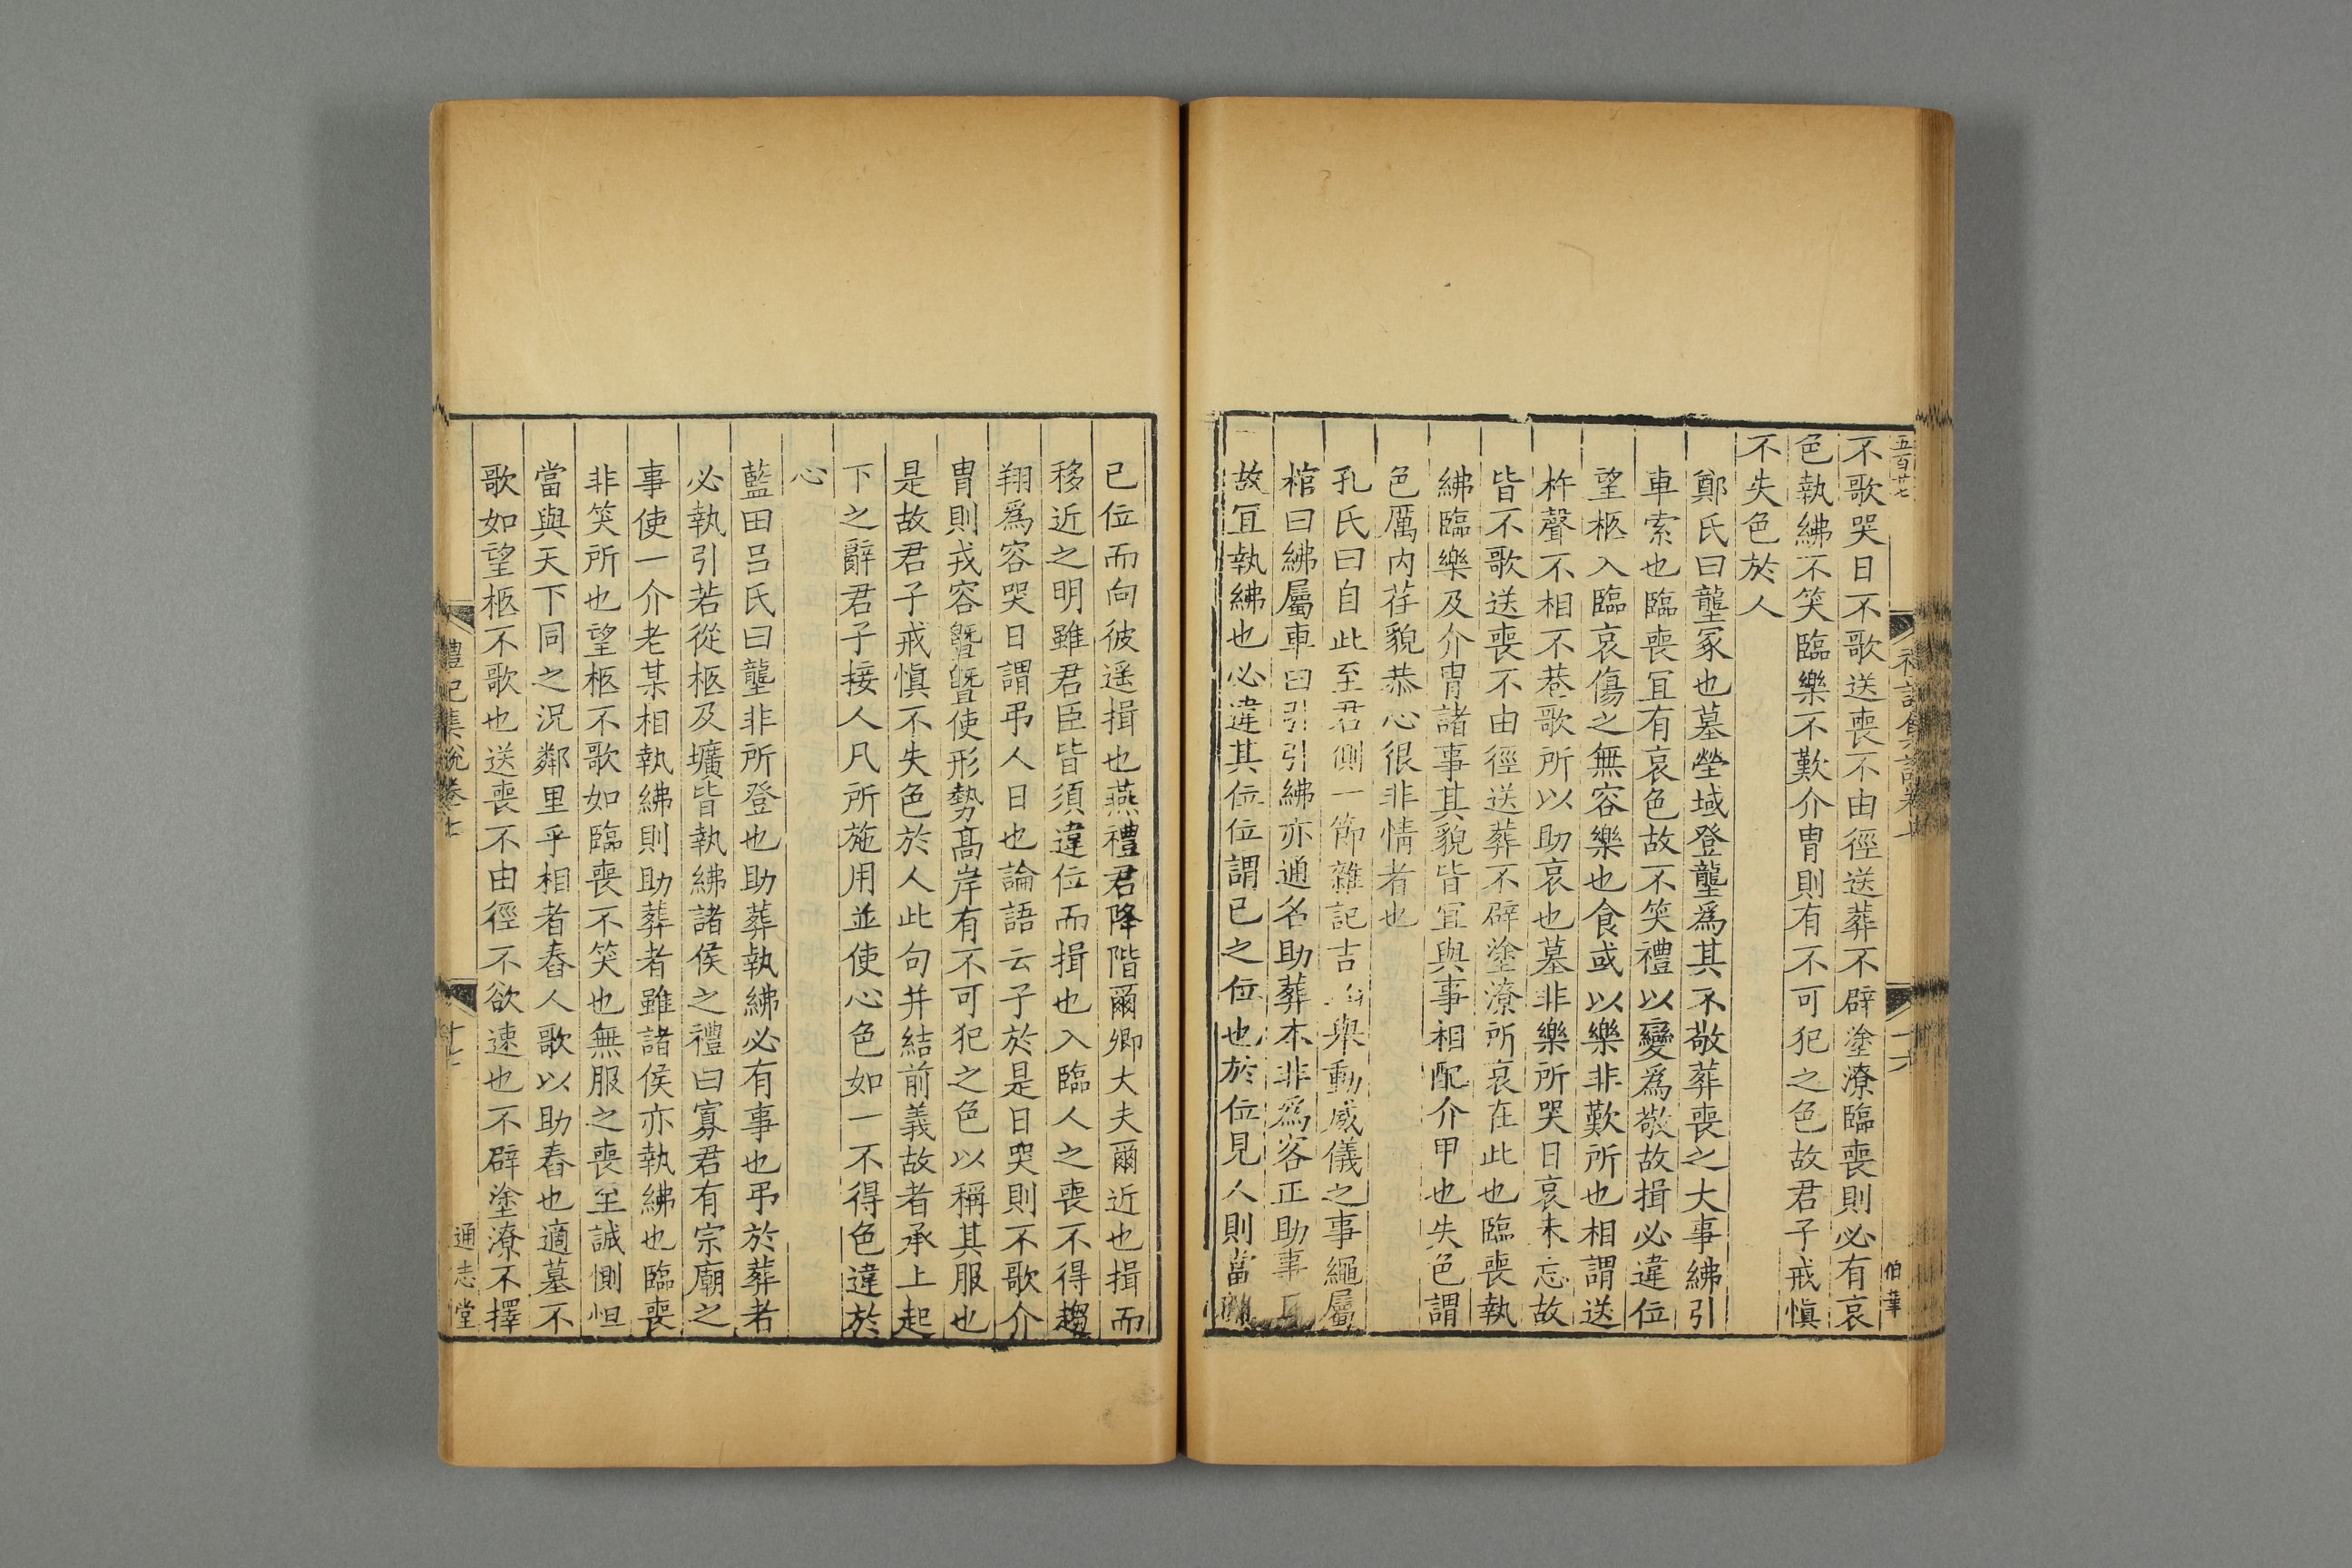 五百廿七
伯華
不歌哭日不歌送喪不由徑送葬不辟塗潦臨喪則必有哀
色執紼不笑臨樂不歎介冑則有不可犯之色故君子戒愼
不失色於人
鄭氏曰壟冢也墓塋域登壟爲其不敬葬喪之大事紼引
車索也臨喪冝有哀色故不笑禮以變爲敬故揖必違位
望柩入臨哀傷之無容樂也食或以樂非歎所也相謂送
杵聲不相不巷歌所以助哀也墓非樂所哭日哀未忘故
皆不歌送喪不由徑送葬不辟塗潦所哀在此也臨喪執
紼臨樂及介冑諸事其貌皆冝與事相配介甲也失色謂
色厲內荏貌恭心很非情者也
孔氏曰自此至君側一節雜記吉 舉動威儀之事繩屬
棺曰紼屬車曰引引紼亦通名助葬本非爲客正助事
故冝執紼也必違其位位謂已之位也於位見人則當
已位而向彼遥揖也燕禮君降階爾卿大夫爾近也揖而
移近之明雖君臣皆須違位而揖也入臨人之喪不得趨
翔爲容哭日謂弔人日也論語云子於是日哭則不歌介
冑則戎容曁曁使形勢髙岸有不可犯之色以稱其服也
是故君子戒愼不失色於人此句并結前義故者承上起
下之辭君子接人凡所施用並使心色如一不得色違於
心
藍田呂氏曰壟非所登也助葬執紼必有事也弔於葬者
必執引若從柩及壙皆執紼諸侯之禮曰寡君有宗廟之
事使一介老某相執紼則助葬者雖諸侯亦執紼也臨喪
非笑所也望柩不歌如臨喪不笑也無服之喪至誠惻怛
當與天下同之況鄰里乎相者舂人歌以助舂也適墓不
歌如望柩不歌也送喪不由徑不欲速也不辟塗潦不擇
禮記集說卷七
十七
通志堂